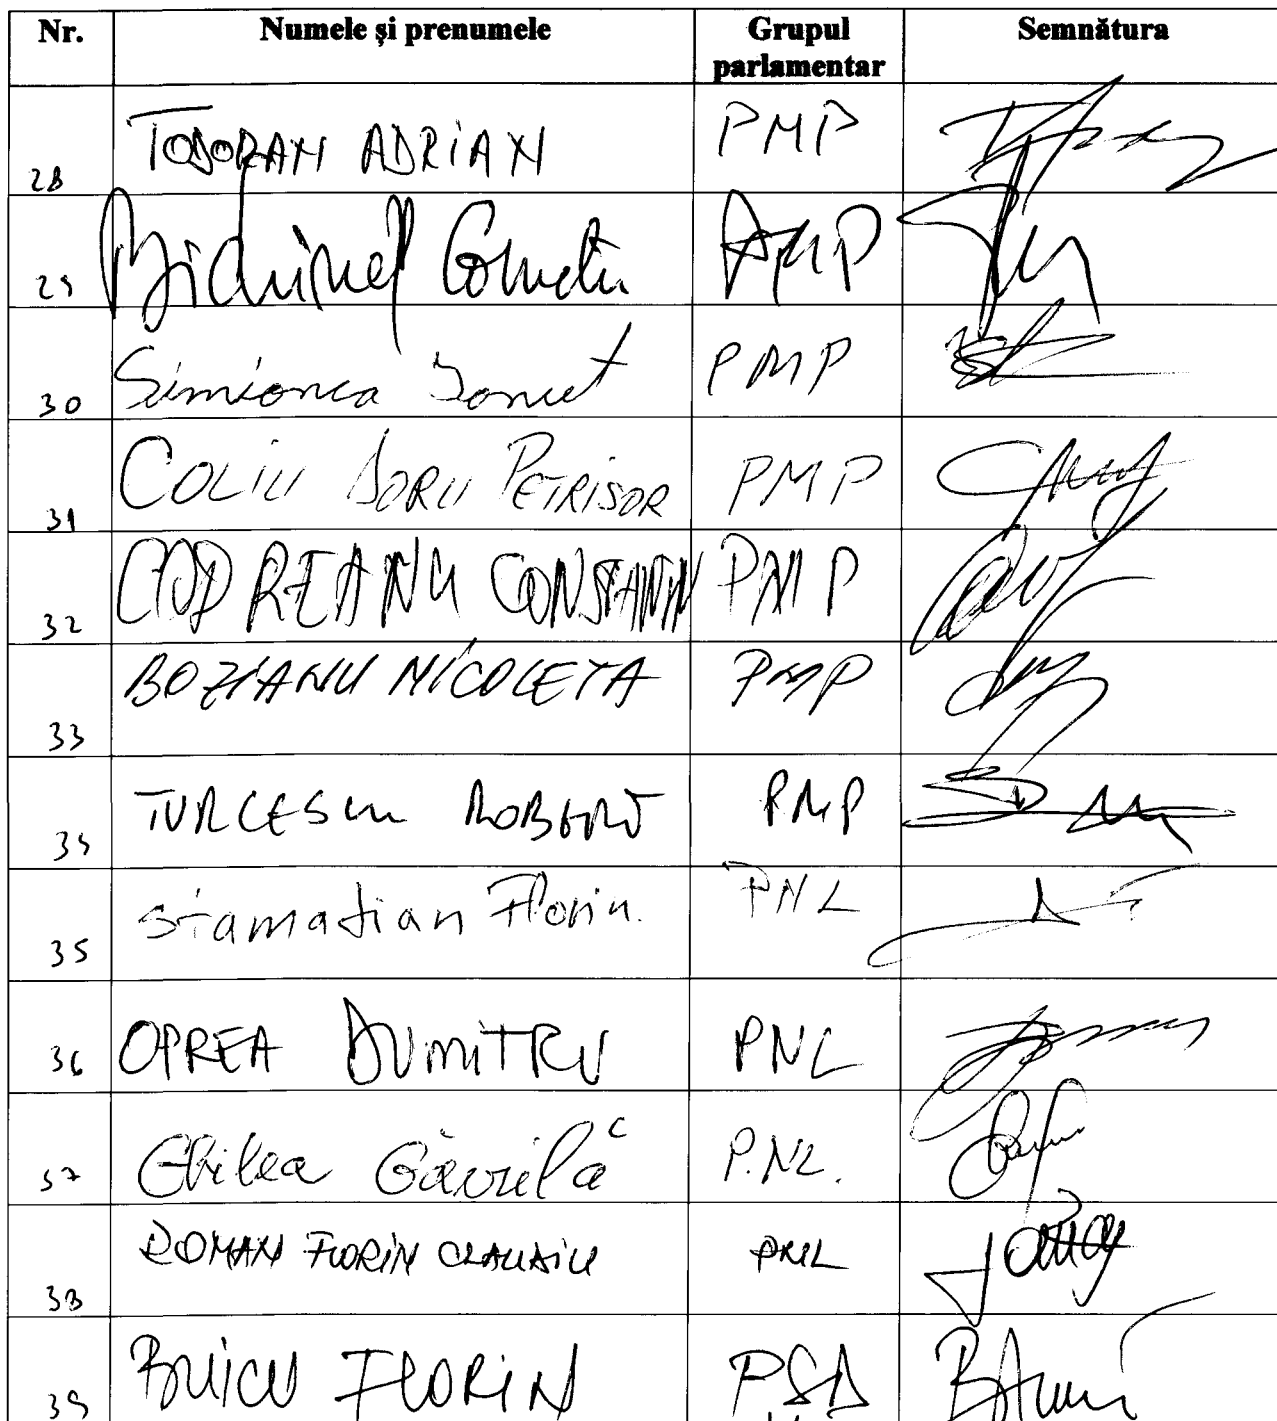 Nr. Numele și prenumele Grupul parlamentar Semnătura
28 TODORAN ADRIAN PMP
29 Bichineț Corneliu PMP
30 Simionca Ionuț PMP
31 COLIU DORU PETRISOR PMP
32 CODREANU CONSTANTIN PMP
33 BOZIANU NICOLETA PMP
34 TURCESCU ROBERT PMP
35 Stamatian Florin PNL
36 OPREA DUMITRU PNL
37 Ghilea Găvrilă P.NL.
38 ROMAN FLORIN CLAUDIU PNL
39 BUICU FLORIN PSD